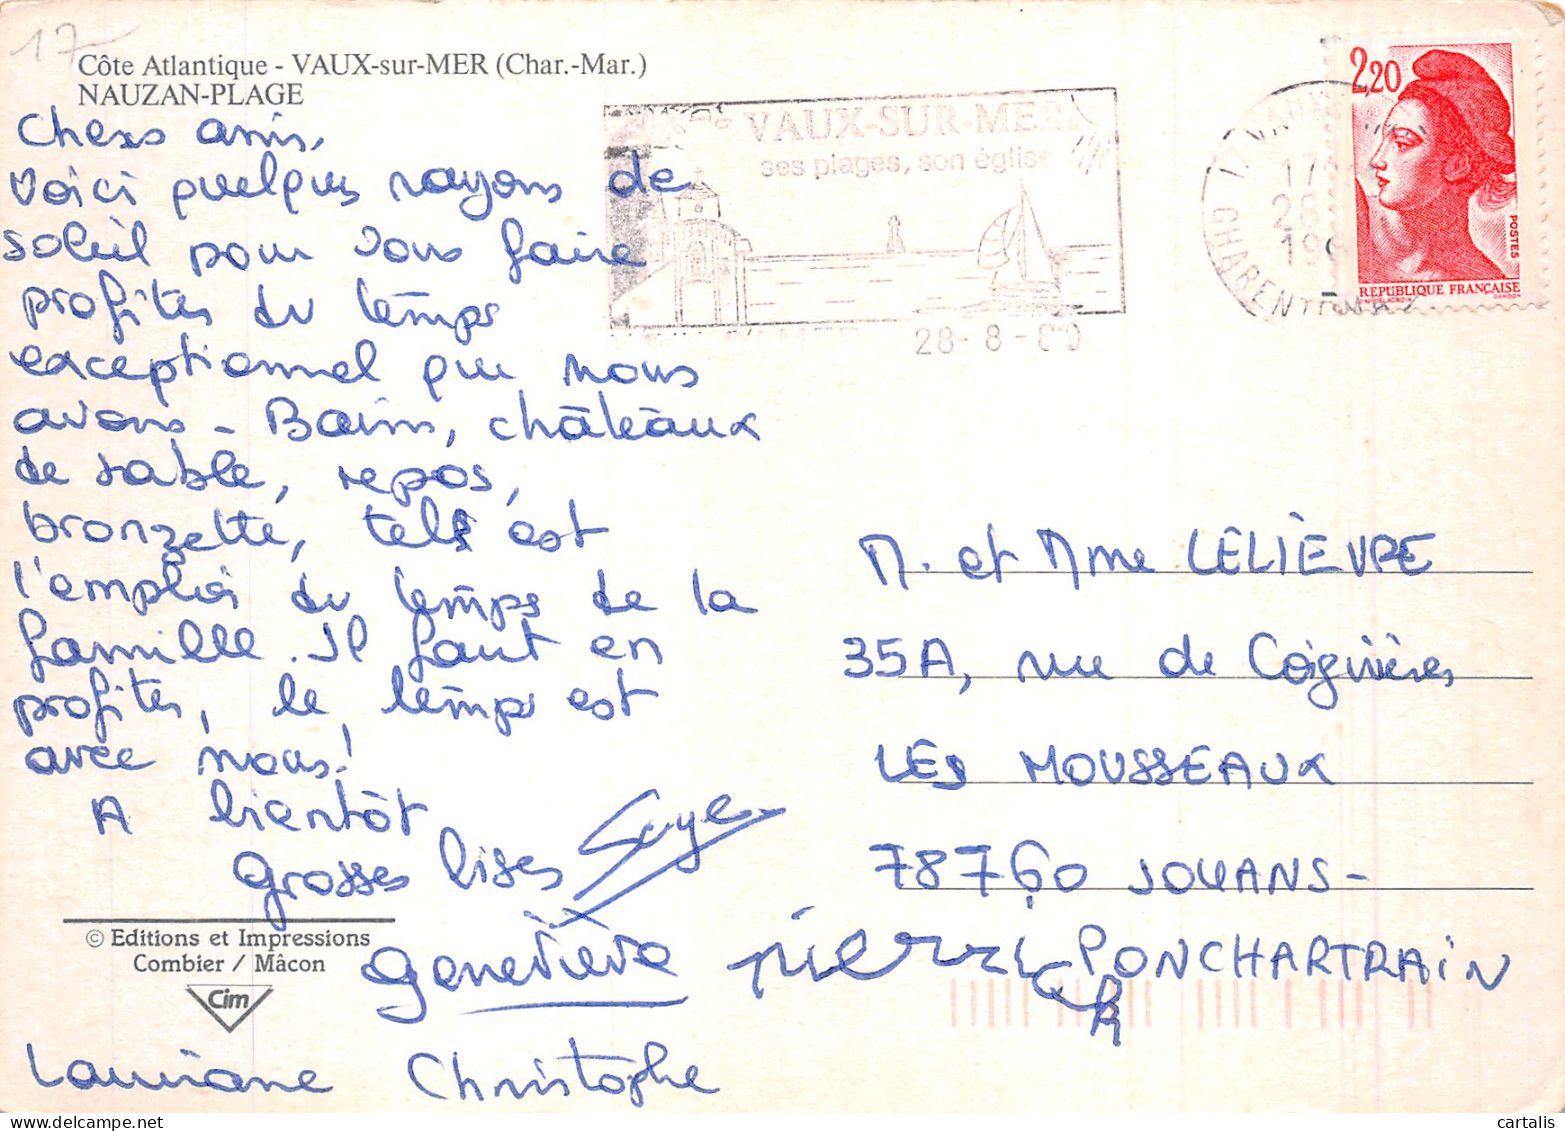 17
Côte Atlantique - VAUX-sur-MER (Char.-Mar.)
NAUZAN-PLAGE
Chers amis,
Voici quelques rayons de
soleil pour vous faire
profiter du temps
exceptionnel que nous
avons - Bains, châteaux
de sable, repos,
bronzette, tel est
l'emploi du temps de la
famille. Il faut en
profiter, le temps est
avec nous!
A bientôt
Grosses bises
Geneviève
Pierrick
Lauriane Christophe
© Editions et Impressions
Combier / Mâcon
Cim
VAUX-SUR-MER
ses plages, son église
28-8-89
17 VAUX
CHARENTE
17
28
19
2,20
POSTES
REPUBLIQUE FRANÇAISE
M. et Mme LELIÈVRE
35A, rue de Coignières
LES MOUSSEAUX
78760 JOUANS-
PONCHARTRAIN
delcampe.net
cartalis